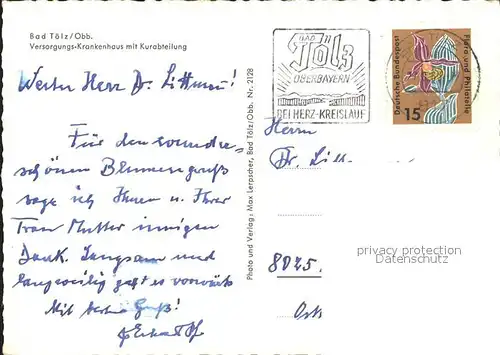 Bad Tölz/Obb.
Versorgungs-Krankenhaus mit Kurabteilung
Werter Herr Dr. Littmann!
Für den wunder-
schönen Blumengruß
sage ich Ihnen u. Ihrer
Frau Mutter innigen
Dank. Langsam und
langweilig geht es vorwärts
Mit Gruß!
Photo und Verlag: Max Lerpscher, Bad Tölz/Obb. Nr. 2128
BAD
Tölz
OBERBAYERN
BEI HERZ-KREISLAUF
Deutsche Bundespost
Flora und Philatelie
15
Herrn
Dr. Litt
8025.
privacy protection
Datenschutz